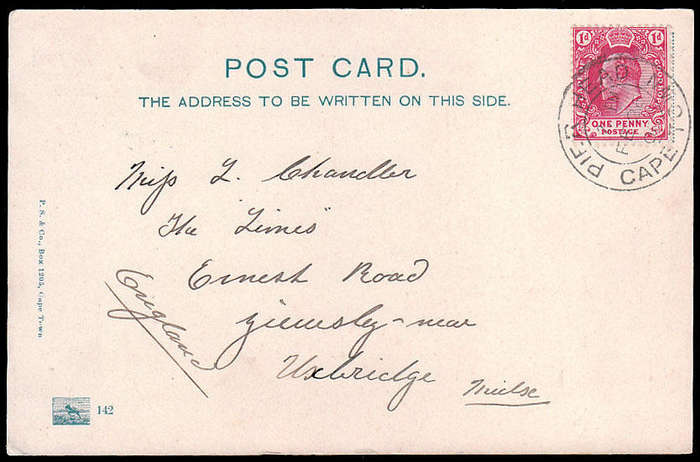 POST CARD.
THE ADDRESS TO BE WRITTEN ON THIS SIDE.
1d 1d
ONE PENNY
POSTAGE
PIER HEAD CAPE TOWN
Miss L. Chandler
"The Limes"
Ernest Road
near
Uxbridge
England
P. S. & Co., Box 1205, Cape Town
142